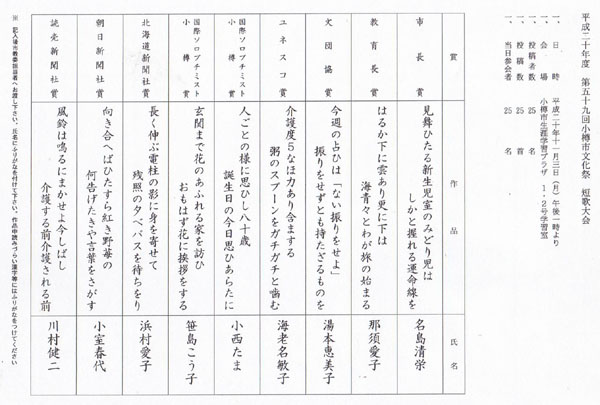 平成二十年度 第五十九回小樽市文化祭 短歌大会
一、日時 平成二十年十一月三日(月)午後一時より
一、会場 小樽市生涯学習プラザ 1・2号学習室
一、投稿者数 25名
一、投稿数 25首
一、当日参会者 25名
賞 作品 氏名
市長賞
見舞ひたる新生児室のみどり児は
しかと握れる運命線を
名島清栄
教育長賞
はるか下に雲あり更に下は
海青々とわが旅の始まる
那須愛子
文団協賞
今週の占ひは「ない振りをせよ」
振りをせずとも持たざるものを
湯本恵美子
ユネスコ賞
介護度5なほ力あり含まする
粥のスプーンをガチガチと噛む
海老名敏子
国際ソロプチミスト小樽賞
人ごとの様に思ひし八十歳
誕生日の今日思ひあらたに
小西たま
国際ソロプチミスト小樽賞
玄関まで花のあふれる家を訪ひ
おもはず花に挨拶をする
笹島こう子
北海道新聞社賞
長く伸ぶ電柱の影に身を寄せて
残照の夕べバスを待ちをり
浜村愛子
朝日新聞社賞
向き合へばひたすら紅き野苺の
何告げたきや言葉をさがす
小室春代
読売新聞社賞
風鈴は鳴るにまかせよ今しばし
介護する前介護される前
川村健二
※ 記入後市教委担当者へお渡し下さい。氏名にふりがなを付けて下さい。作品中読みづらい漢字等にはふりがなをつけてください